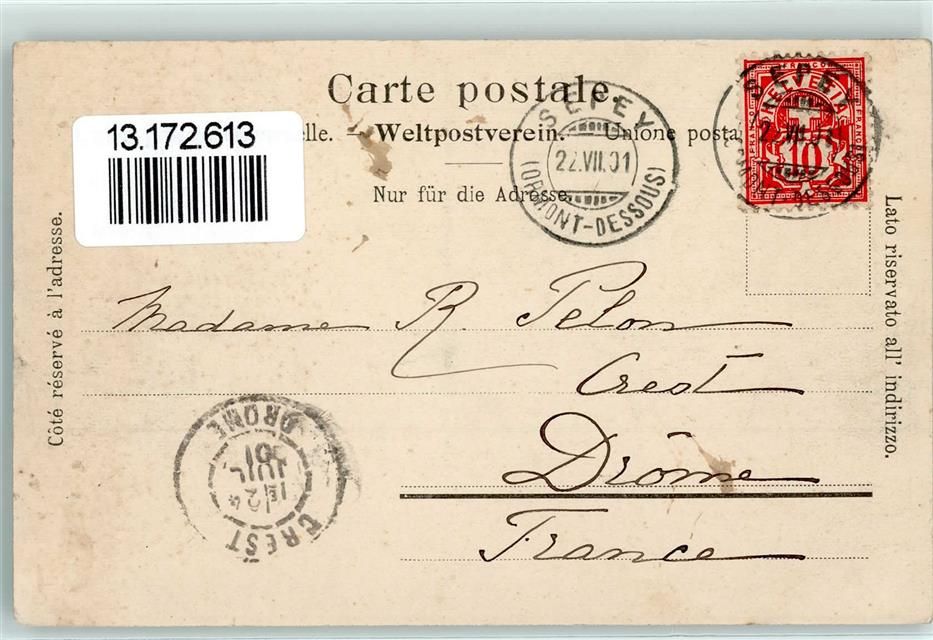 Carte postale.
13.172.613
elle. — Weltpostverein. — Unione posta
Nur für die Adresse.
SEPEY
22.VII.01
(ORMONT-DESSOUS)
FRANCO
HELVETIA
10
SEPEY
Côté réservé à l'adresse.
Lato riservato all' indirizzo.
Madame R. Pelon
Crest
Drôme
France
CREST
1E
24
JUIL
01
DROME